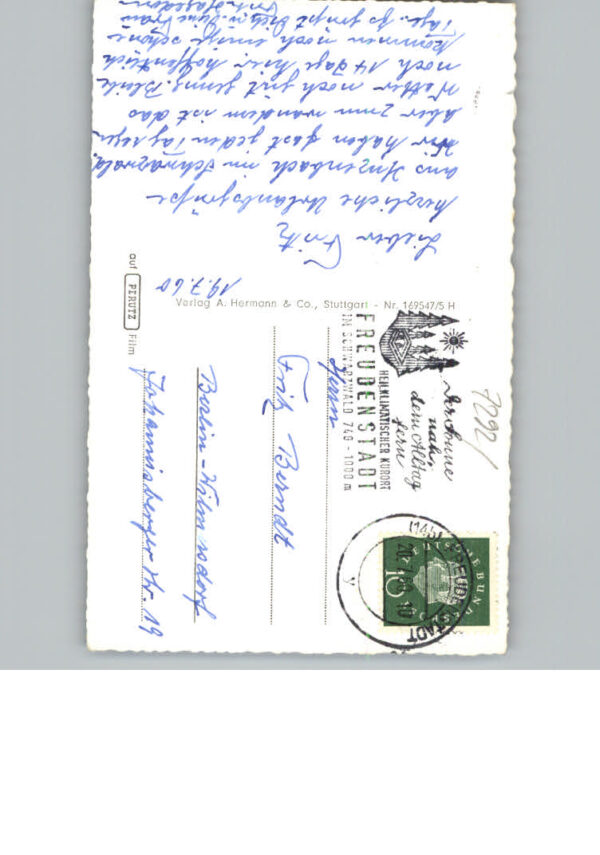 19.7.60
Lieber Fritz
herzliche Urlaubsgrüße
aus Huzenbach im Schwarzwald.
Wir haben fast jeden Tag regen
aber zum wandern ist das
Wetter noch gut genug. Bleibe
noch 14 Tage hier hoffentlich
kommen noch einige schöne
Tage. Es grüßt Dich u. Deine Frau
Verlag A. Hermann & Co., Stuttgart - Nr. 169547/5 H
auf PERUTZ Film
7292/
Der Sonne
nah,
dem Alltag
fern
HEILKLIMATISCHER KURORT
FREUDENSTADT
IM SCHWARZWALD 740-1000 m
(14b) FREUDENSTADT
DEUTSCHE BUNDESPOST
10
Herrn
Fritz Berndt
Berlin-Wilmersdorf
Johannisberger Str. 19